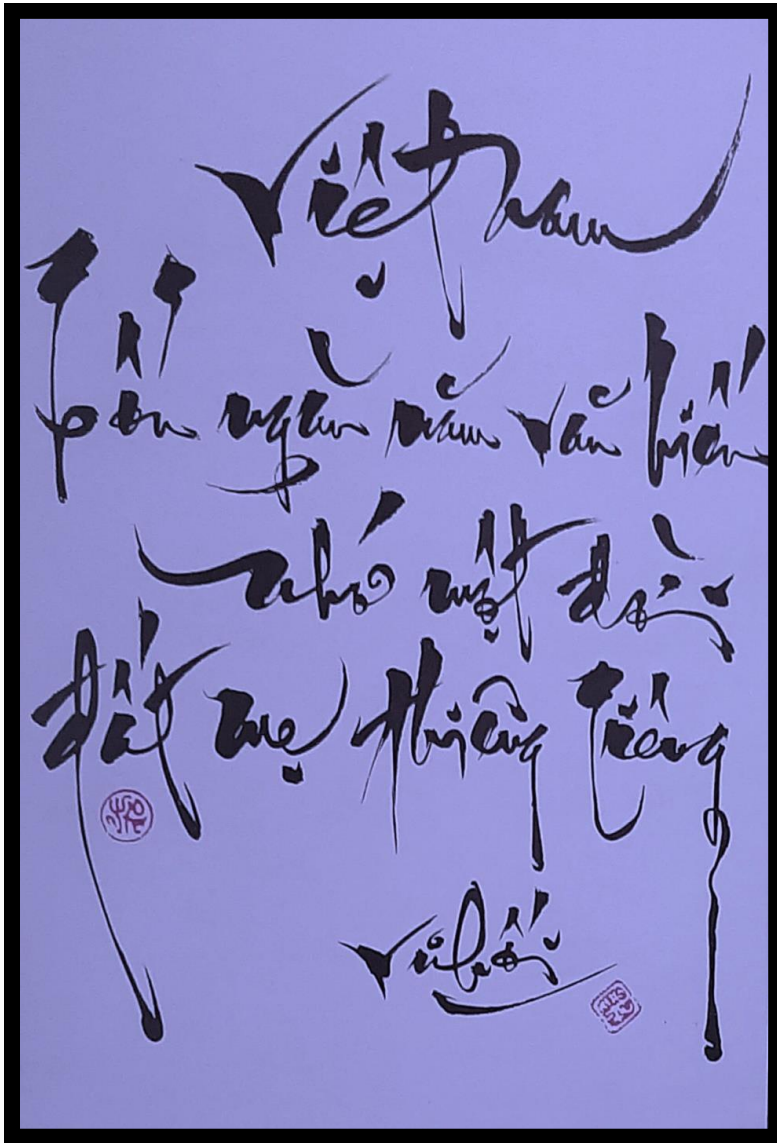 Việt Nam
Bốn ngàn năm văn hiến
nhớ một đời
đất mẹ thiêng liêng
Vũ Hối